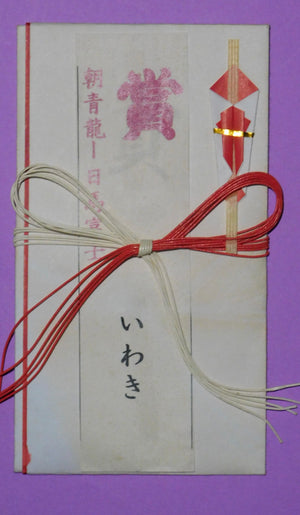 賞
いわき
朝青龍ー日馬富士